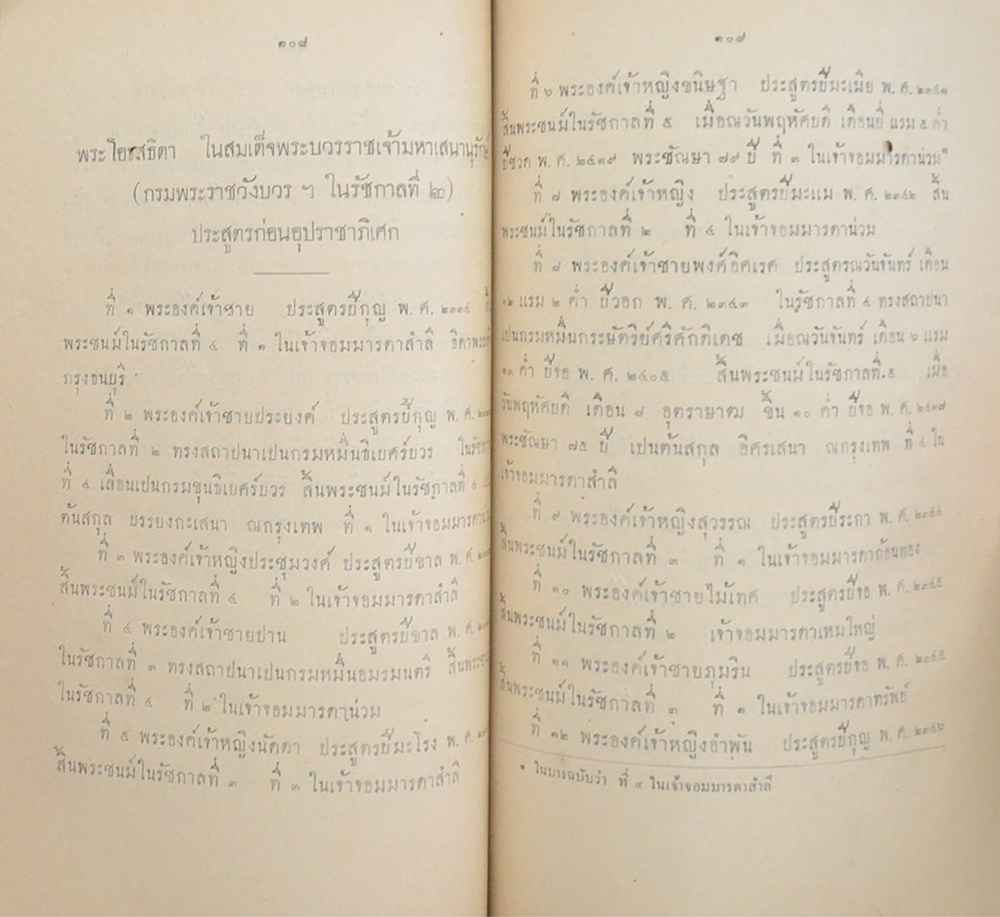 ๑๐๘
พระโอรสธิดา ในสมเด็จพระบวรราชเจ้ามหาเสนานุรักษ์
(กรมพระราชวังบวร ฯ ในรัชกาลที่ ๒)
ประสูตรก่อนอุปราชาภิเศก
ที่ ๑ พระองค์เจ้าชาย ประสูตรปีกุญ พ. ศ. ๒๓๓๔
พระชนม์ในรัชกาลที่ ๔ ที่ ๑ ในเจ้าจอมมารดาสำลี ธิดาพระเจ้า
กรุงธนบุรี
ที่ ๒ พระองค์เจ้าชายประยงค์ ประสูตรปีกุญ พ. ศ.
ในรัชกาลที่ ๒ ทรงสถาปนาเปนกรมหมื่นธิเบศร์บวร
ที่ ๔ เลื่อนเปนกรมขุนธิเบศร์บวร สิ้นพระชนม์ในรัชกาลที่ ๔
ต้นสกุล บรรยงกะเสนา ณกรุงเทพ ที่ ๑ ในเจ้าจอมมารดา
ที่ ๓ พระองค์เจ้าหญิงประชุมวงศ์ ประสูตรปีขาล พ. ศ.
สิ้นพระชนม์ในรัชกาลที่ ๔ ที่ ๒ ในเจ้าจอมมารดาสำลี
ที่ ๔ พระองค์เจ้าชายปาน ประสูตรปีขาล พ. ศ.
ในรัชกาลที่ ๓ ทรงสถาปนาเปนกรมหมื่นอมรมนตรี สิ้นพระชนม์
ในรัชกาลที่ ๔ ที่ ๒ ในเจ้าจอมมารดาน่วม
ที่ ๕ พระองค์เจ้าหญิงนัดดา ประสูตรปีมะโรง พ. ศ.
สิ้นพระชนม์ในรัชกาลที่ ๓ ที่ ๓ ในเจ้าจอมมารดาสำลี
๑๐๙
ที่ ๖ พระองค์เจ้าหญิงขนิษฐา ประสูตรปีมะเมีย พ. ศ. ๒๓๔๑
สิ้นพระชนม์ในรัชกาลที่ ๕ เมื่อณวันพฤหัศบดี เดือนยี่ แรม ๕ ค่ำ
ปีชวด พ. ศ. ๒๔๑๙ พระชัณษา ๗๙ ปี ที่ ๓ ในเจ้าจอมมารดาน่วม*
ที่ ๗ พระองค์เจ้าหญิง ประสูตรปีมะแม พ. ศ. ๒๓๔๒ สิ้น
พระชนม์ในรัชกาลที่ ๒ ที่ ๔ ในเจ้าจอมมารดาน่วม
ที่ ๘ พระองค์เจ้าชายพงศ์อิศเรศ ประสูตรณวันจันทร์ เดือน
๑๒ แรม ๒ ค่ำ ปีวอก พ. ศ. ๒๓๔๓ ในรัชกาลที่ ๔ ทรงสถาปนา
เปนกรมหมื่นกระษัตริย์ศรีศักดิเดช เมื่อณวันจันทร์ เดือน ๖ แรม
๑๓ ค่ำ ปีจอ พ. ศ. ๒๔๐๕ สิ้นพระชนม์ในรัชกาลที่ ๕ เมื่อ
วันพฤหัศบดี เดือน ๘ อุตราษาฒ ขึ้น ๑๐ ค่ำ ปีจอ พ. ศ. ๒๔๑๗
พระชัณษา ๗๕ ปี เปนต้นสกุล อิศรเสนา ณกรุงเทพ ที่ ๔ ใน
เจ้าจอมมารดาสำลี
ที่ ๙ พระองค์เจ้าหญิงสุวรรณ ประสูตรปีระกา พ. ศ. ๒๓๔๔
สิ้นพระชนม์ในรัชกาลที่ ๓ ที่ ๑ ในเจ้าจอมมารดาก้อนทอง
ที่ ๑๐ พระองค์เจ้าชายไม้เทศ ประสูตรปีจอ พ. ศ. ๒๓๔๕
สิ้นพระชนม์ในรัชกาลที่ ๒ เจ้าจอมมารดาเหมใหญ่
ที่ ๑๑ พระองค์เจ้าชายภุมริน ประสูตรปีจอ พ. ศ. ๒๓๔๕
สิ้นพระชนม์ในรัชกาลที่ ๓ ที่ ๑ ในเจ้าจอมมารดาทรัพย์
ที่ ๑๒ พระองค์เจ้าหญิงอำพัน ประสูตรปีกุญ พ. ศ. ๒๓๔๖
* ในบางฉบับว่า ที่ ๔ ในเจ้าจอมมารดาสำลี